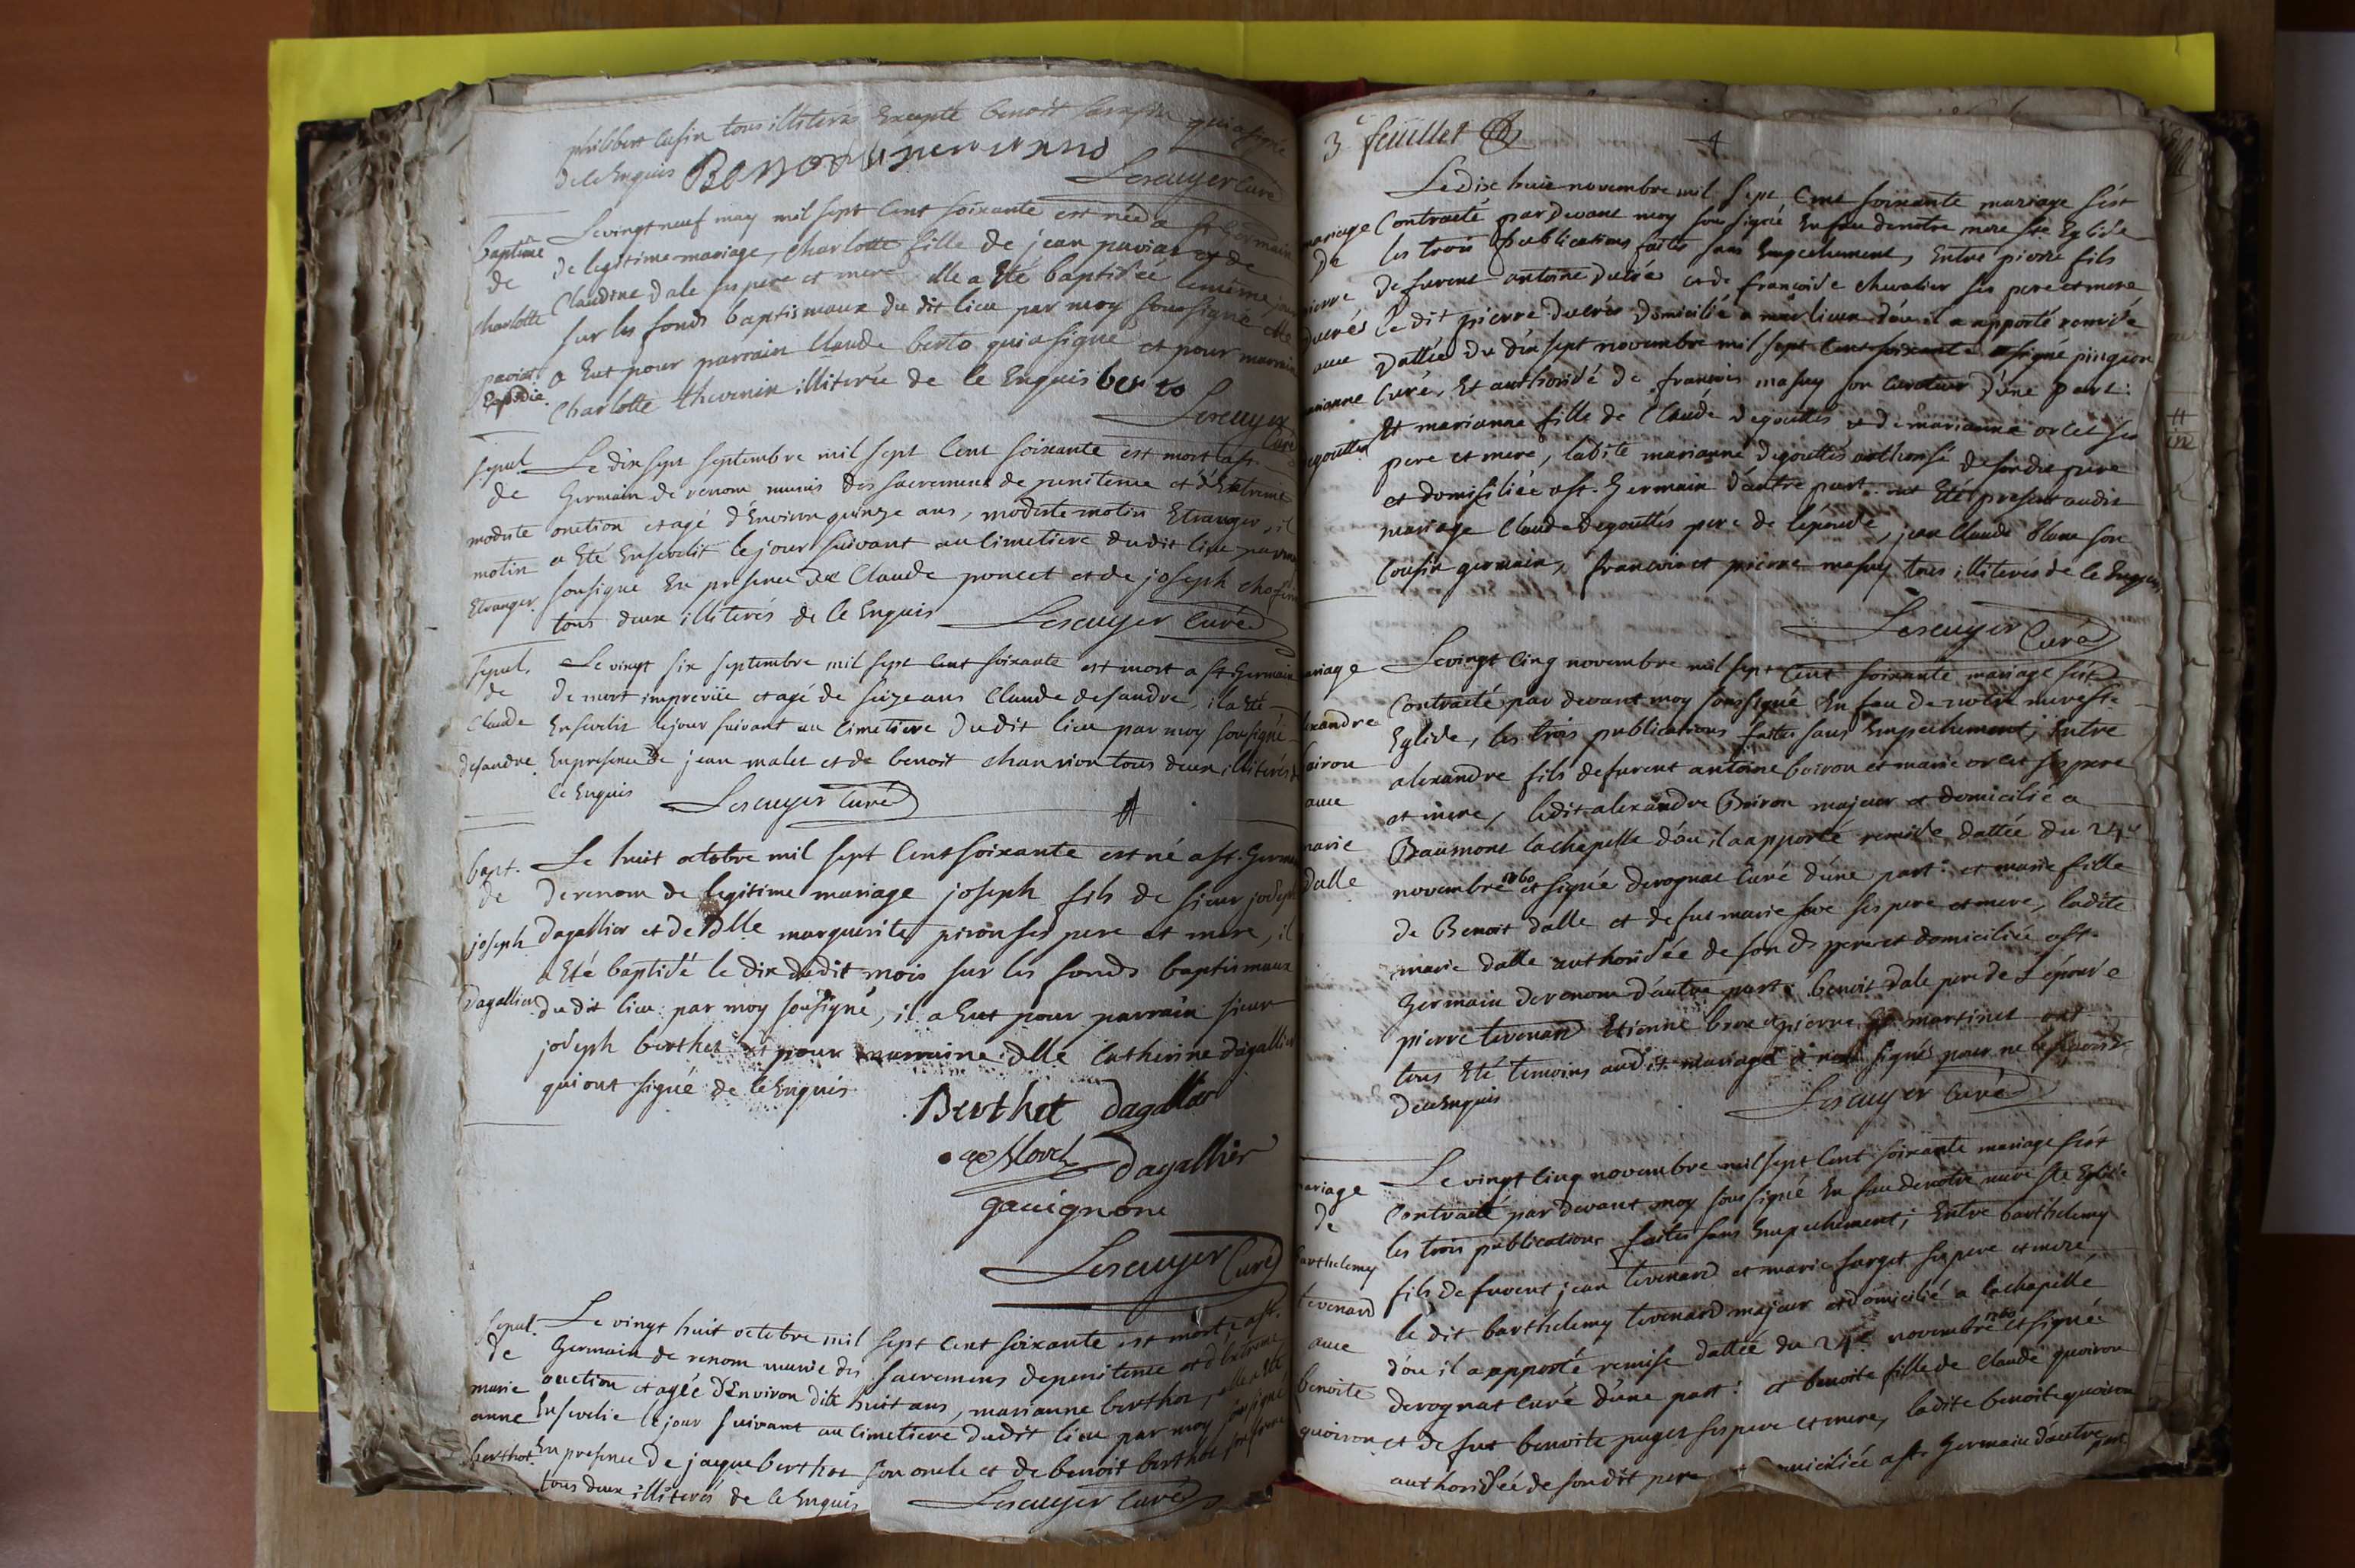 philibert cusin tous illiterés Excepté benoit qui a signé
de le Enquis
Lescuyer Curé
Baptême
de
charlotte
paviot
Le vingt neuf may mil sept Cent soixante est née a St Germain
de legitime mariage, Charlotte fille de jean paviot et de
Claudine dale ses pere et mere elle a Eté baptisée le même jour
sur les fonds baptismaux du dit lieu par moy soussigné elle
a Eut pour parrain Claude berto qui a signé et pour marraine
Charlotte thevenin illiterée de le Enquis berto
Lescuyer
Curé
sepul.
de
modeste
motin
Etranger.
Le dix sept septembre mil sept Cent soixante est mort a st.
Germain de renom munis des sacremens de penitence et d'Extreme
onction et agé d'Environ quinze ans, modeste motin Etranger, il
a Eté Enseveli le jour suivant au Cimetiere du dit lieu par moy
sousigné En presence de Claude poncet et de joseph
tous deux illiterés de le Enquis Lescuyer Curé
sepul.
de
Claude
desandre.
Le vingt six septembre mil sept cent soixante est mort a st Germain
de mort imprevüe et agé de seize ans Claude desandre, il a Eté
Enseveli le jour suivant au Cimetiere du dit lieu par moy sousigné
En presence de jean malet et de benoit chanrion tous deux illiterés de
le Enquis Lescuyer Curé
bapt.
de
joseph
Dagallier
Le huit octobre mil sept Cent soixante est né a st. Germain
de renom de legitime mariage joseph fils de sieur joseph
Dagallier et de dlle marguerite piron ses pere et mere, il
a Eté baptisé le dix dudit mois sur les fonds baptismaux
du dit lieu par moy sousigné, il a Eut pour parrain sieur
joseph berthet et pour marraine dlle Catherine Dagallier
qui ont signé de le Enquis
Berthet Dagallier
Dagallier
gauignone
Lescuyer Curé
sepul.
de
marie
anne
berthot.
Le vingt huit octobre mil sept cent soixante est morte a st.
Germain de renom munie des sacremens de penitence et d'Extreme
onction et agée d'Environ dix huit ans, marianne berthot, elle a Eté
Ensevelie le jour suivant au Cimetiere du dit lieu par moy sousigné
En presence de jaque berthot son oncle et de benoit berthot son frere
tous deux illiterés de le Enquis Lescuyer Curé
3e feuillet
mariage
de
pierre
ducrés
avec
marianne
degouttes
Le dix huit novembre mil sept Cent soixante mariage s'est
Contracté par devant moy sous signé En face de notre mere ste Eglise
les trois publications faites sans Empechement, Entre pierre fils
de furent antoine ducrés et de francoise chevalier ses pere et mere
le dit pierre ducrés domicilié a d'ou il a apporté remise
dattée du dix sept novembre mil sept Cent soixante signé pingeon
Curé, Et authorisé de francois masuy son Curateur d'une part:
Et marianne fille de Claude degouttes et de marianne orcet ses
pere et mere, ladite marianne degouttes authorisé de son dit pere
et domisiliée a st. Germain d'autre part. ont Eté present audit
mariage Claude degouttes pere de l'épouse, jean Claude blanc son
Cousin germain, francois et pierre masuy tous illiterés de le Enquis,
Lescuyer Curé
mariage
alexandre
boiron
avec
marie
Dalle
Le vingt Cinq novembre mil sept Cent soixante mariage s'est
Contracté par devant moy soussigné En face de notre mere ste.
Eglise, les trois publications faites sans Empechement, Entre
alexandre fils de furent antoine boiron et marie orcet ses pere
et mere, ledit alexandre Boiron majeur et domicilié a
Beaumont la chapelle d'ou il a apporté remise dattée du 24e
novembre 1760 et signée derognat Curé d'une part: et marie fille
de Benoit dalle et de fue marie ses pere et mere, ladite
marie dalle authorisée de son d. pere et domiciliée a st.
Germain de renom d'autre part. benoit dale pere de L'épouse
pierre tevenard Etienne et pierre martinet ont
tous Eté temoins audit mariage signés pour ne le scavoir
de le Enquis Lescuyer Curé
mariage
de
barthelemy
tevenard
avec
benoite
quoiron
Le vingt Cinq novembre mil sept Cent soixante mariage s'est
Contracté par devant moy sous signé En face de notre mere ste Eglise
les trois publications faites sans Empechement; Entre barthelemy
fils de furent jean tevenard et marie farget ses pere et mere,
le dit barthelemy tevenard majeur et domicilié a la chapelle
d'ou il a apporté remise dattée du 24e novembre 1760 et signée
derognat Curé d'une part: et benoite fille de Claude quoiron
et de fue benoite puget ses pere et mere, ladite benoite quoiron
authorisée de son dit pere et domiciliée a st. Germain d'autre part